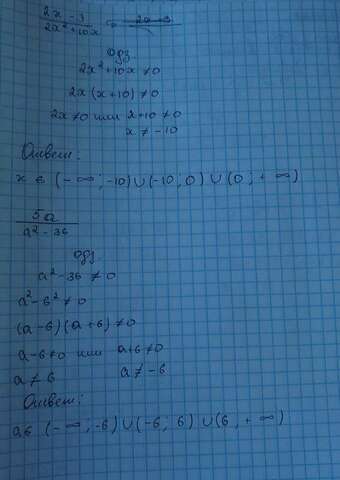 2x - 3 / 2x² + 10x =
ОДЗ
2x² + 10x ≠ 0
2x (x + 10) ≠ 0
2x ≠ 0 или x + 10 ≠ 0
x ≠ -10
Ответ:
x ∈ (-∞; -10) ∪ (-10; 0) ∪ (0; +∞)
5a / a² - 36
ОДЗ
a² - 36 ≠ 0
a² - 6² ≠ 0
(a - 6)(a + 6) ≠ 0
a - 6 ≠ 0 или a + 6 ≠ 0
a ≠ 6 a ≠ -6
Ответ:
a ∈ (-∞; -6) ∪ (-6; 6) ∪ (6; +∞)